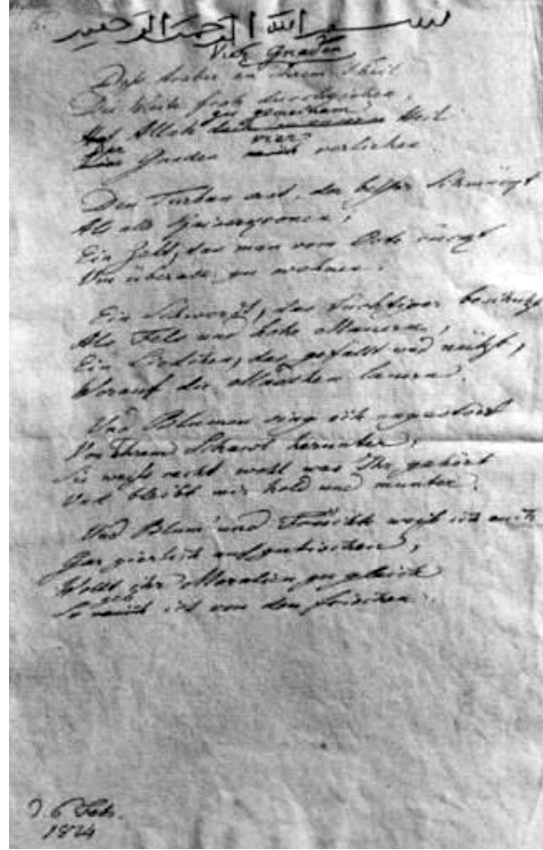 بسم الله الرحمن الرحيم
Vier Gnaden
Daß Araber an ihrem Theil
Die Weite froh durchziehen,
zu gemeinem
Hat Allah Heil
Der vier
Gnaden verliehen.
Den Turban erst, der besser schmückt
Als alle Kaiserkronen;
Ein Zelt, das man vom Orte rückt
Um überall zu wohnen.
Ein Schwerdt, das tüchtiger beschützt
Als Fels und hohe Mauern,
Ein Liedchen, das gefällt und nützt,
Worauf die Mädchen lauern.
Und Blumen sing ich ungestört
Von ihrem Shawl herunter;
Sie weiß recht wohl was Ihr gehört
Und bleibt mir hold und munter.
Und Blum' und Früchte weiß ich euch
Gar zierlich aufzutischen,
Wollt ihr Moralien zugleich
geb
So ich von den frischen.
D. 6 Febr.
1814